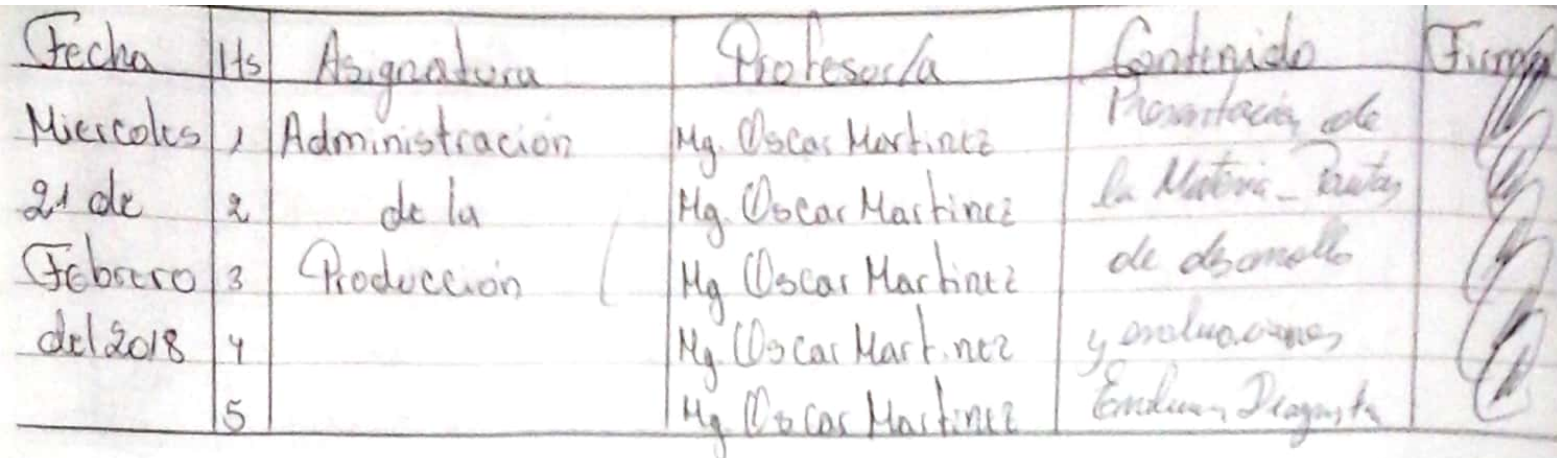 Fecha Hs Asignatura Profesor/a Contenido Firma
Miercoles 1 Administración Mg. Oscar Martinez Presentación de
21 de 2 de la Mg. Oscar Martinez la Materia - Pautas
Febrero 3 Producción Mg Oscar Martinez de desarrollo
del 2018 4 Mg. Oscar Martinez y evaluaciones
5 Mg. Oscar Martinez